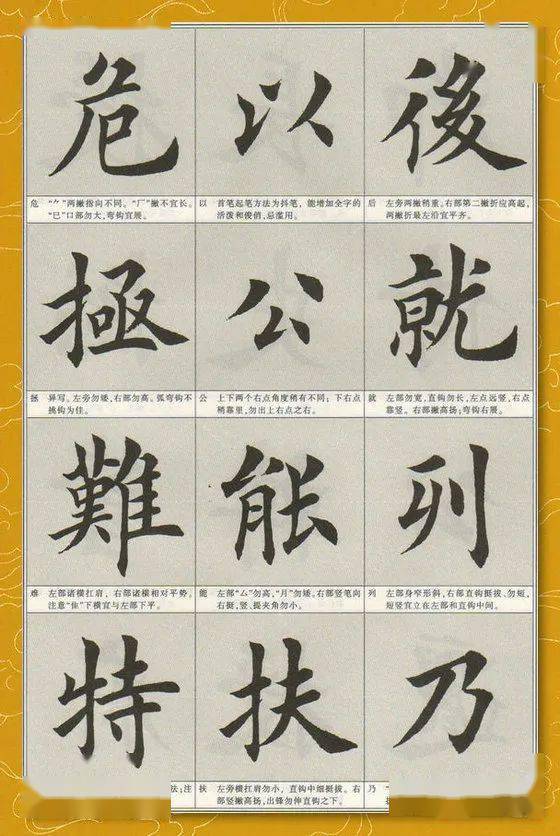 危 以 後
危 “⺈”两撇指向不同。“厂”撇不宜长。
“巳”口部勿大,弯钩宜展。
以 首笔起笔方法为抖笔,能增加全字的
活泼和俊俏,忌滥用。
后 左旁两撇稍重。右部第二撇折应高起,
两撇折最左沿宜平齐。
拯 公 就
拯 异写。左旁勿矮,右部勿高。弧弯钩不
挑钩为佳。
公 上下两个右点角度稍有不同;下右点
稍靠里,勿出上右点之右。
就 左部勿宽,直钩勿长,左点远竖,右点
靠竖。右部撇高扬;弯钩右展。
難 能 列
难 左部诸横扛肩,右部诸横相对平势。
注意“隹”下横宜与左部下平。
能 左部“厶”勿高,“月”勿矮。右部竖笔向
右挺,竖、提夹角勿小。
列 左部身窄形斜,右部直钩挺拔、勿短,
短竖宜立在左部和直钩中间。
特 扶 乃
法;注
扶 左旁横扛肩勿小,直钩中细挺拔。右
部竖撇高扬,出锋勿伸直钩之下。
乃